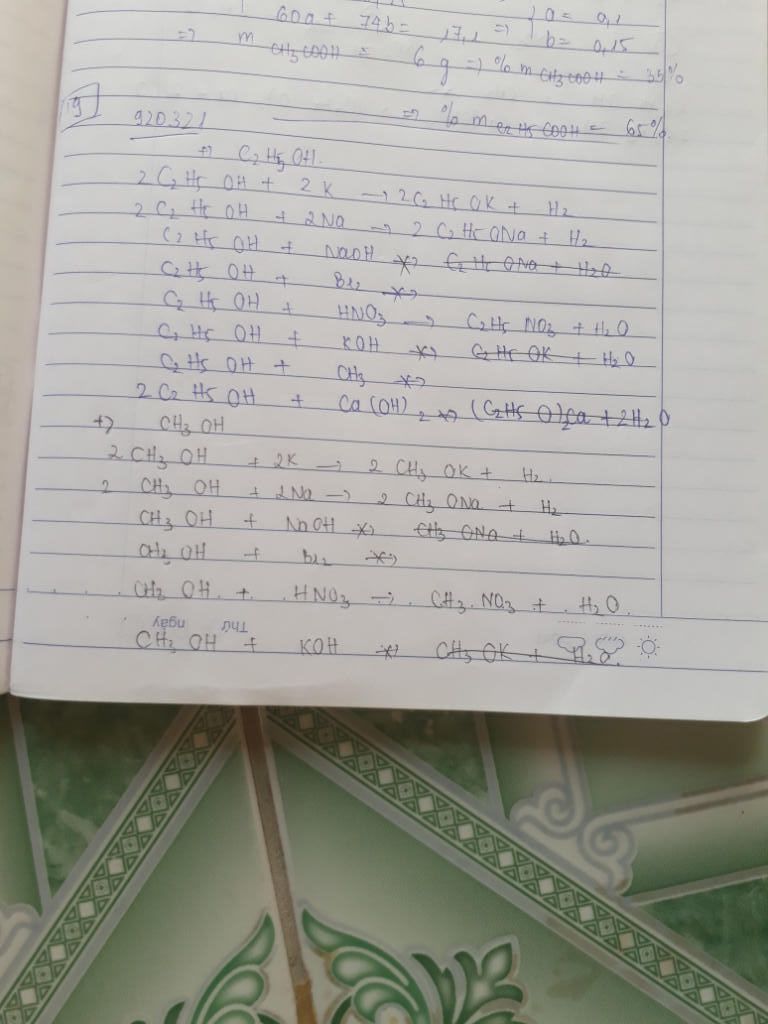 60a + 74b = 17,1 => { a = 0,1
b = 0,15
=> m CH3COOH = 6 g => % m CH3COOH = 35%
=> % m C2H5COOH = 65%
19
920321
+) C2H5OH.
2 C2H5OH + 2K → 2C2H5OK + H2
2 C2H5OH + 2Na → 2 C2H5ONa + H2
C2H5OH + NaOH -x-> C2H5ONa + H2O
C2H5OH + Br2 -x->
C2H5OH + HNO3 → C2H5NO3 + H2O
C2H5OH + KOH -x-> C2H5OK + H2O
C2H5OH + CH3 -x->
2 C2H5OH + Ca(OH)2 -x-> (C2H5O)2Ca + 2H2O
+) CH3OH
2 CH3OH + 2K → 2 CH3OK + H2.
2 CH3OH + 2Na → 2 CH3ONa + H2
CH3OH + NaOH -x-> CH3ONa + H2O.
CH3OH + Br2 -x->
CH3OH + HNO3 → CH3NO3 + H2O.
Thứ ngày
CH3OH + KOH -x-> CH3OK + H2O.